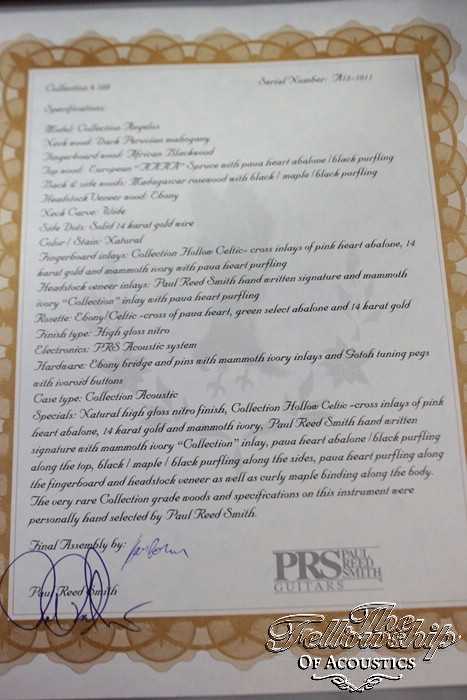 Collection # 108
Serial Number: A12-1011
Specifications:
Model: Collection Angelus
Neck wood: Dark Peruvian mahogany
Fingerboard wood: African Blackwood
Top wood: European "AAAA" Spruce with paua heart abalone / black purfling
Back & side woods: Madagascar rosewood with black / maple / black purfling
Headstock Veneer wood: Ebony
Neck Carve: Wide
Side Dots: Solid 14 karat gold wire
Color / Stain: Natural
Fingerboard inlays: Collection Hollow Celtic- cross inlays of pink heart abalone, 14
karat gold and mammoth ivory with paua heart purfling
Headstock veneer inlays: Paul Reed Smith hand written signature and mammoth
ivory "Collection" inlay with paua heart purfling
Rosette: Ebony/Celtic -cross of paua heart, green select abalone and 14 karat gold
Finish type: High gloss nitro
Electronics: PRS Acoustic system
Hardware: Ebony bridge and pins with mammoth ivory inlays and Gotoh tuning pegs
with ivoroid buttons
Case type: Collection Acoustic
Specials: Natural high gloss nitro finish, Collection Hollow Celtic -cross inlays of pink
heart abalone, 14 karat gold and mammoth ivory, Paul Reed Smith hand written
signature with mammoth ivory "Collection" inlay, paua heart abalone / black purfling
along the top, black / maple / black purfling along the sides, paua heart purfling along
the fingerboard and headstock veneer as well as curly maple binding along the body.
The very rare Collection grade woods and specifications on this instrument were
personally hand selected by Paul Reed Smith.
Final Assembly by:
Paul Reed Smith
PRS PAUL
REED
SMITH
GUITARS
The
Fellowship
OF ACOUSTICS